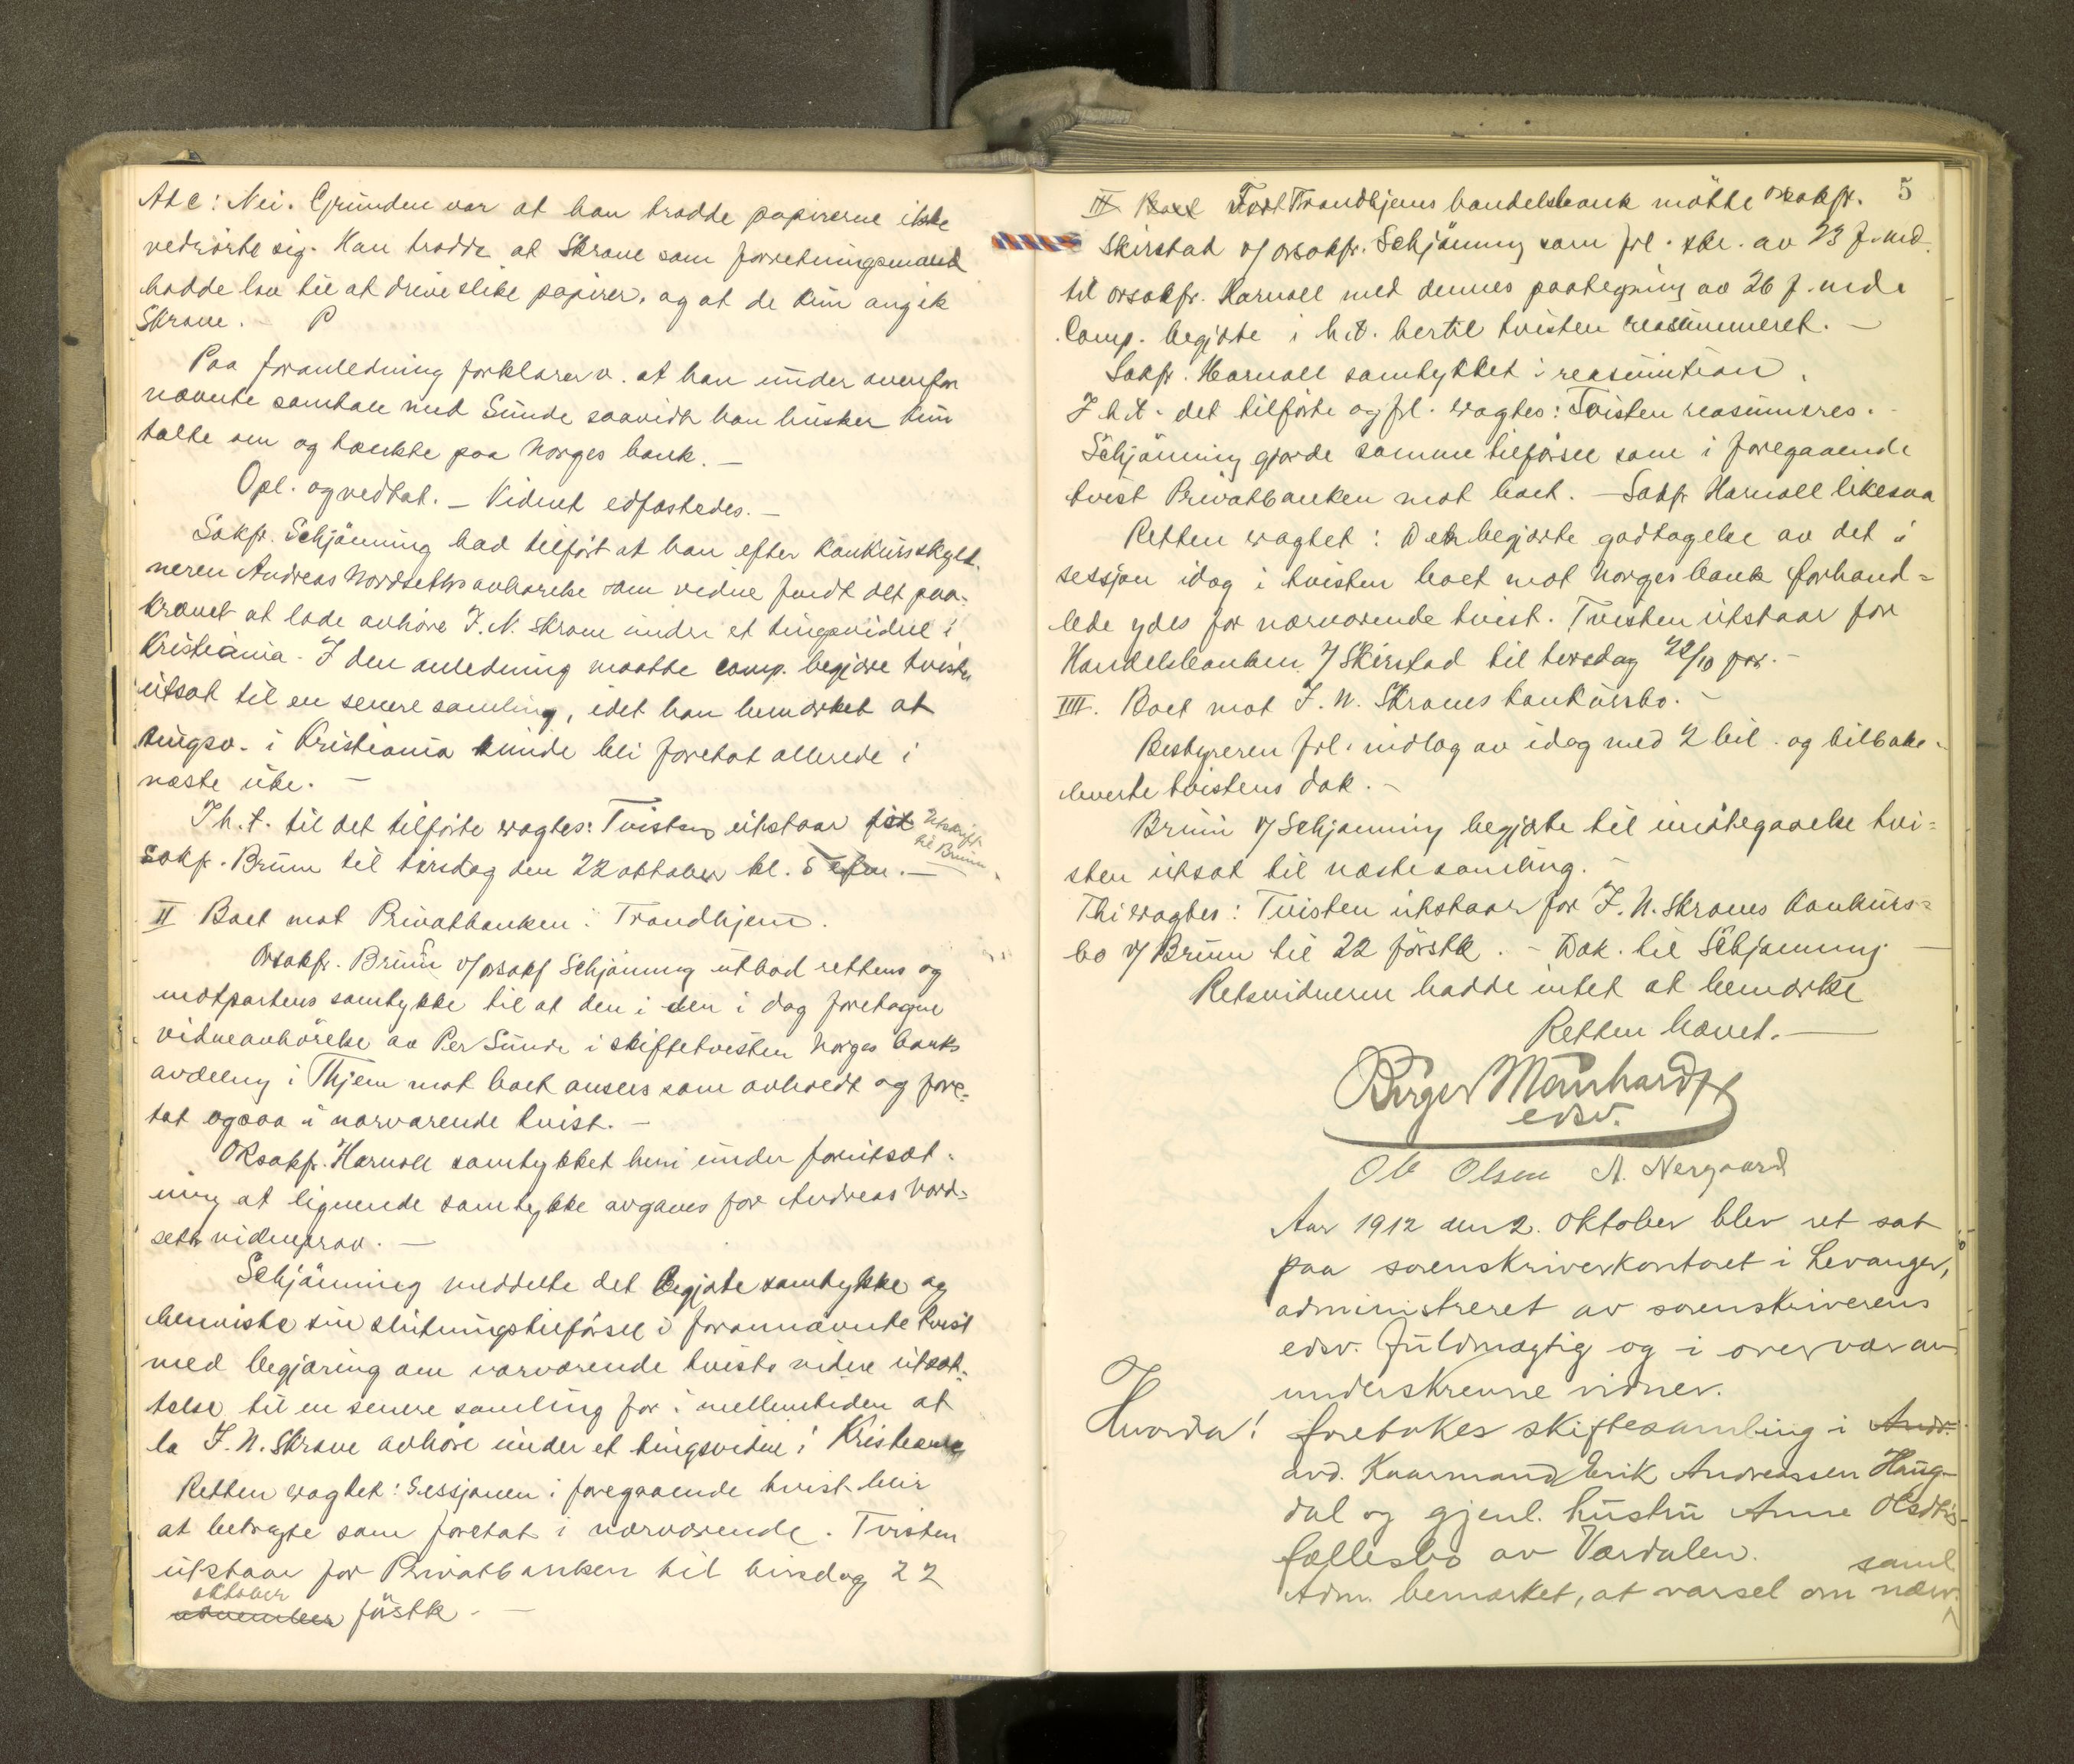 Ad C: Nei. Grunden var at han trodde papirerne ikke
vedrørte sig. Han trodde at Skrove som forretningsmand
hadde lov til at drive slike papirer, og at de kun angik
Skrove. –
Paa foranledning forklarer v. at han under ovenfor
nævnte samtale med Sunde saavidt han husker kun
talte om og tænkte paa Norges bank. –
Opl. og vedtat. – Vidnet edfæstedes. –
Sakfr. Schjönning bad tilført at han efter konkursskyld-
neren Andreas Nordseths avhørelse som vidne fandt det paa-
krævet at lade avhøre J. N. Skrove under et tingsvidne i
Kristiania. I den anledning maatte comp. begjære tvisten
utsat til en senere samling, idet han bemærket at
tingsv. i Kristiania kunde bli foretat allerede i
næste uke. –
I h. t. til det tilførte eragtes: Tvisten utstaar for
Utskrift
til Bruun
sakf. Bruun til tirsdag den 22 oktober kl. 5 efm. –
II Boet mot Privatbanken i Trondhjem.
Orsakfr. Bruun v/ orsakf Schjönning utbad rettens og
motpartens samtykke til at den i den i dag foretagne
vidneavhörelse av Per Sunde i skiftetvisten Norges banks
avdeling i Thjem mot boet ansees som avholdt og fore-
tat ogsaa i nærværende tvist. –
ORsakfr. Harnoll samtykket heri under forutsæt-
ning at lignende samtykke avgaves for Andreas Nord-
seths vidneprov. –
Schjönning meddelte det begjærte samtykke og
henviste sin slutningstilførsel i forannævnte tvist
med begjæring om nærværende tvists videre utsæt-
telse til en senere samling for i mellemtiden at
la J. N. Skrove avhöre under et tingsvidne i Kristiania
Retten eragtet: Sessjonen i foregaaende tvist blir
at betragte som foretat i nærværende. Tvisten
utstaar for Privatbanken til tirsdag 22
oktober
november förstk. –
5
III Boet For Trondhjems handelsbank mötte orsakfr.
Skirstad v/ orsakfr. Schjönning som frl. skr. av 23 f. md.
til orsakfr. Harnoll med dennes paategning av 26 f. md.
Comp. begjærte i h.t. hertil tvisten reasumeret. –
Sakfr. Harnoll samtykket i reasumtion.
I h.t. det tilförte og frl. eragtes: Tvisten reasumeres. –
Schjönning gjorde samme tilførsel som i foregaaende
tvist Privatbanken mot boet. – Sakfr Harnoll likesaa
Retten eragtet: Den begjærte godtagelse av det i
sessjon idag i tvisten boet mot Norges bank forhand=
lede ydes for nærværende tvist. Tvisten utstaar for
Handelsbanken v/ Skirstad til tirsdag 22/10 frr. –
IIII. Boet mot J. N. Skroves konkursbo. –
Bestyreren frl. indlæg av idag med 2 bil. og tilbake-
leverte tvistens dok. –
Bruun v/ Schjønning begjærte til imötegaaelse tvi=
sten utsat til næste samling. –
Thi eragtes: Tvisten utstaar for J. N. Skroves konkurs=
bo v/ Bruun til 22 förstk. – Dok. til Schjønning –
Retsvidnerne hadde intet at bemærke
Retten hævet. –
Birger Meinhardt
edsv.
Ole Olsen A. Nergaard
Aar 1912 den 2. oktober blev ret sat
paa sorenskriverkontoret i Levanger,
administreret av sorenskriverens
edsv. fuldmægtig og i overvær av
underskrevne vidner.
Hvorda! foretokes skiftesamling i Andr.
avd. Kaarmand Erik Andreassen Haug-
dal og gjenl. hustru Anne Olsdtrs
fællesbo av Værdalen.
saml
Adm. bemærket, at varsel om nærv.